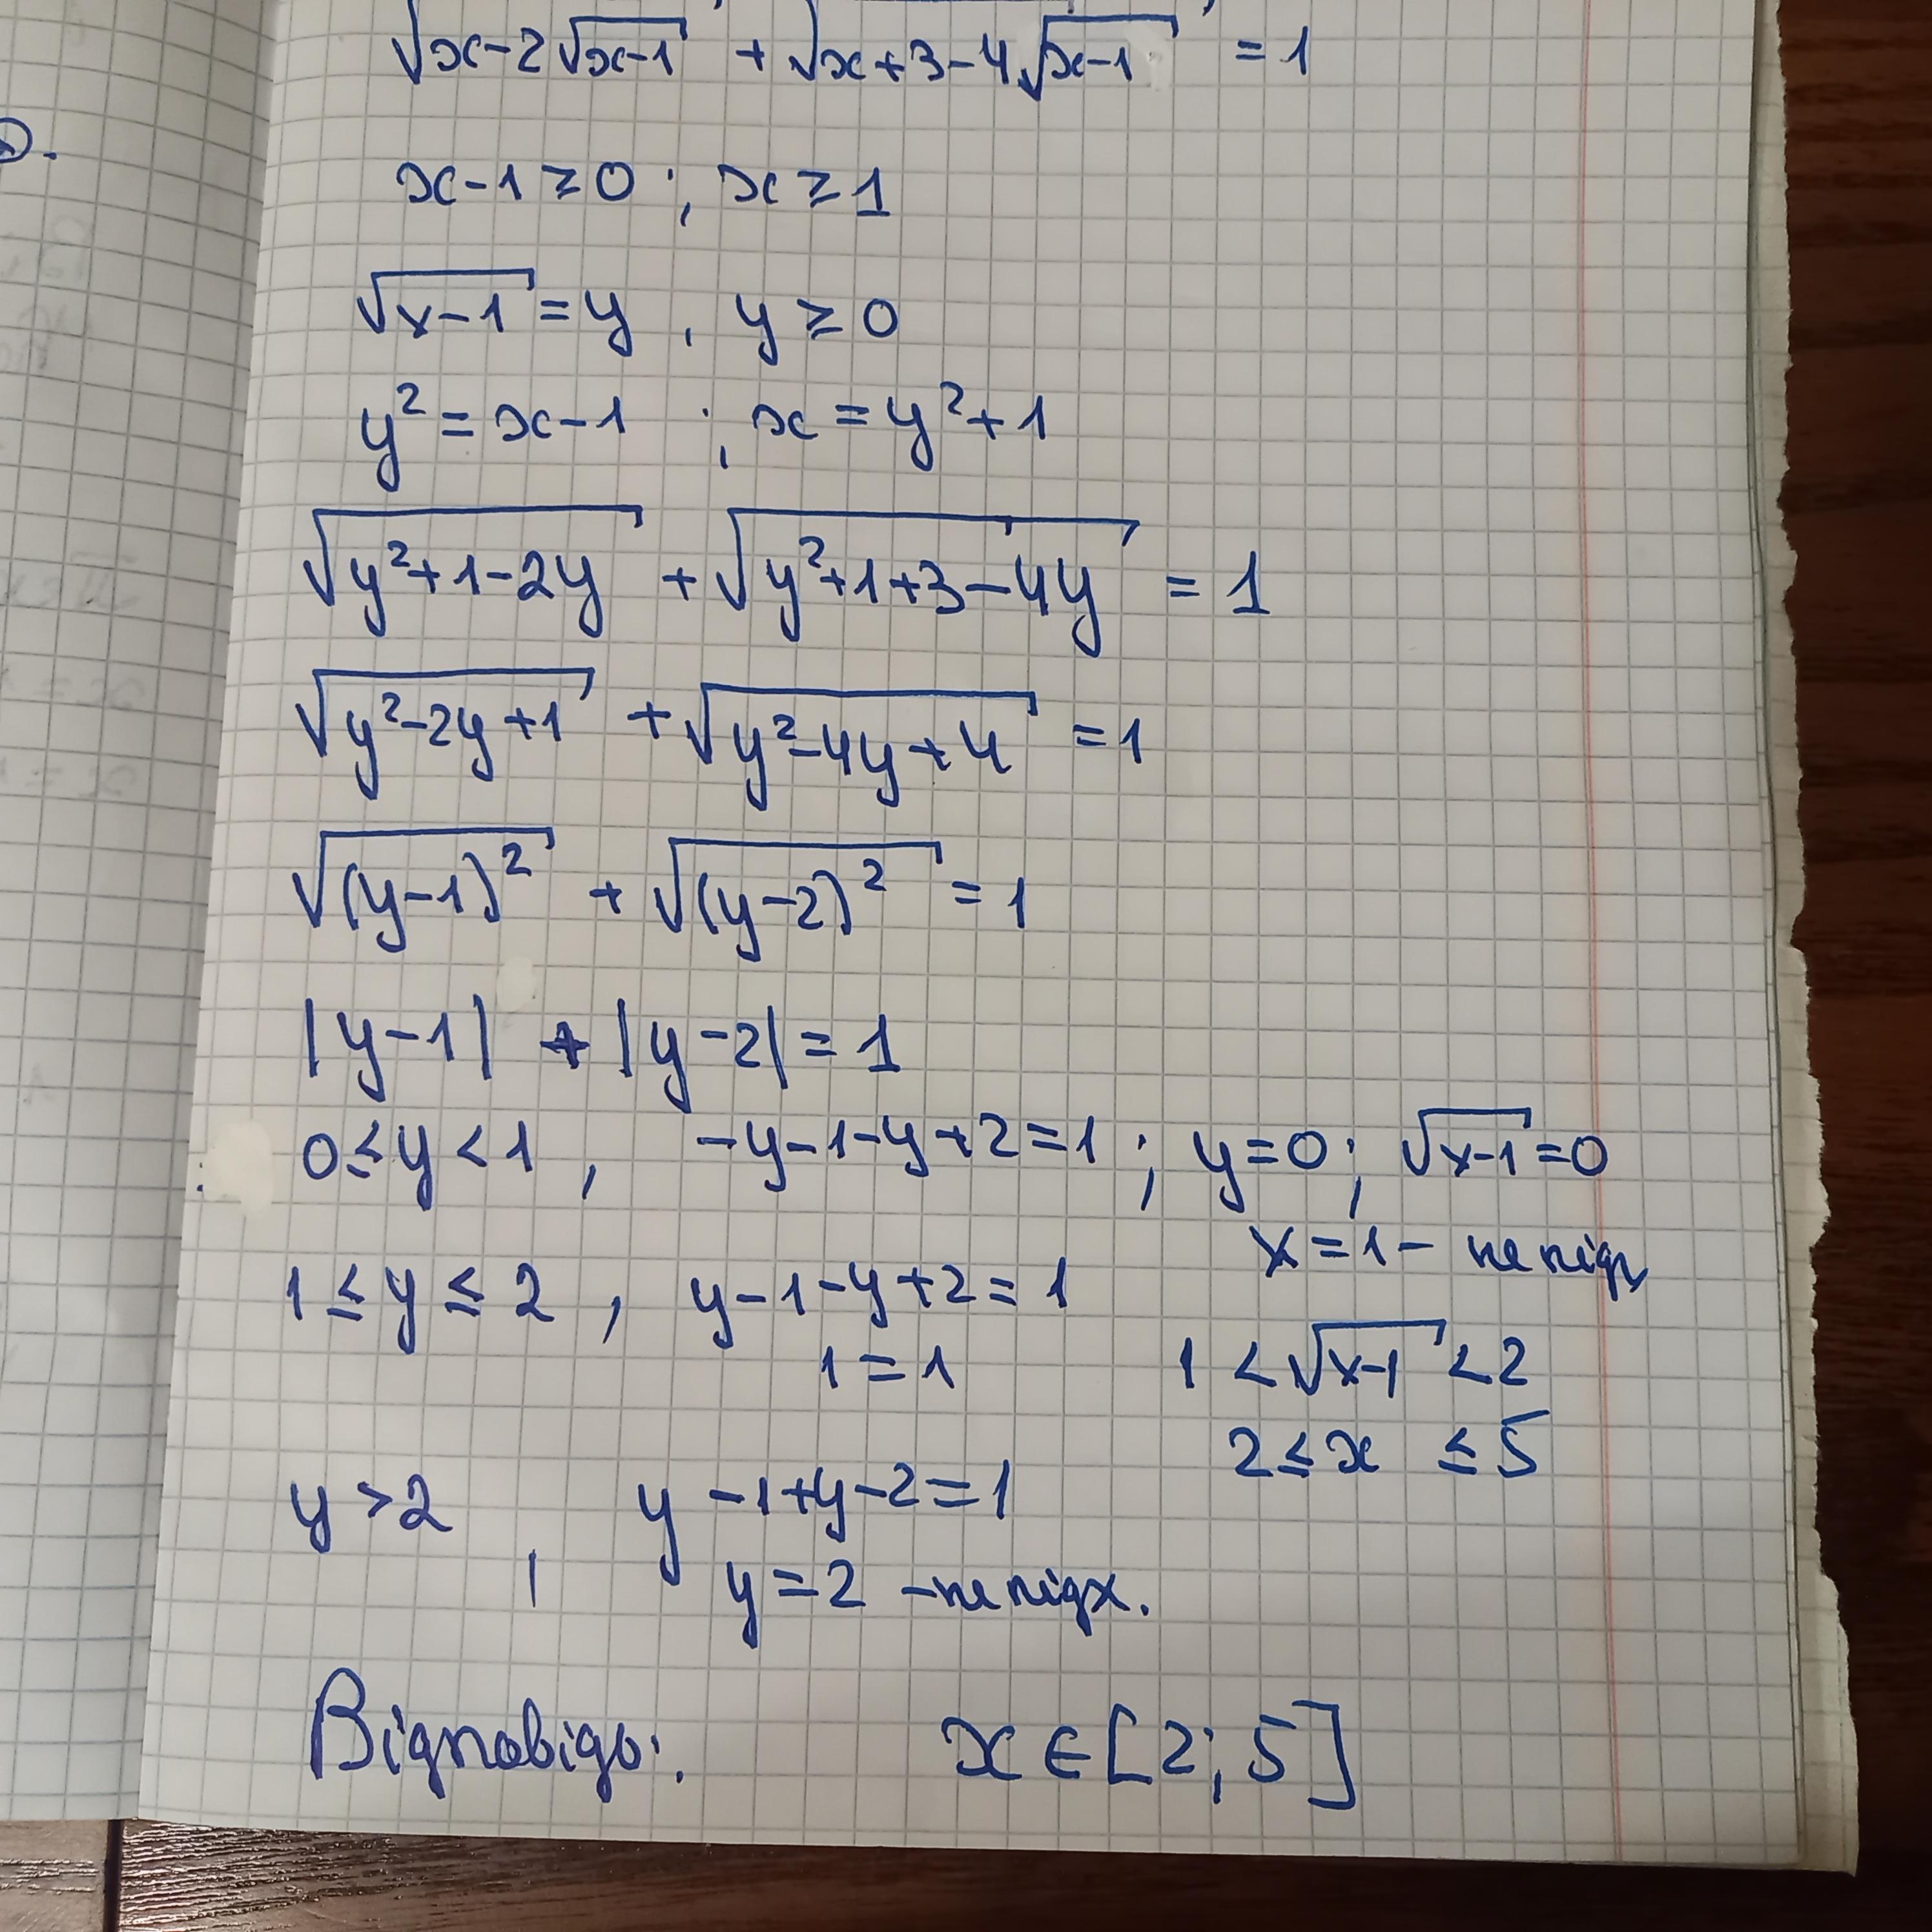 √(x-2√(x-1)) + √(x+3-4√(x-1)) = 1
x-1≥0 ; x≥1
√(x-1) = y , y ≥ 0
y² = x-1 ; x = y²+1
√(y²+1-2y) + √(y²+1+3-4y) = 1
√(y²-2y+1) + √(y²-4y+4) = 1
√((y-1)²) + √((y-2)²) = 1
|y-1| + |y-2| = 1
0≤y<1 , -y-1-y+2=1 ; y=0 ; √(x-1)=0
x=1 - не підх
1 ≤ y ≤ 2 , y-1-y+2=1
1 = 1
1 < √(x-1) < 2
2 ≤ x ≤ 5
y > 2 , y-1+y-2=1
y=2 - не підх.
Відповідь: x ∈ [2; 5]